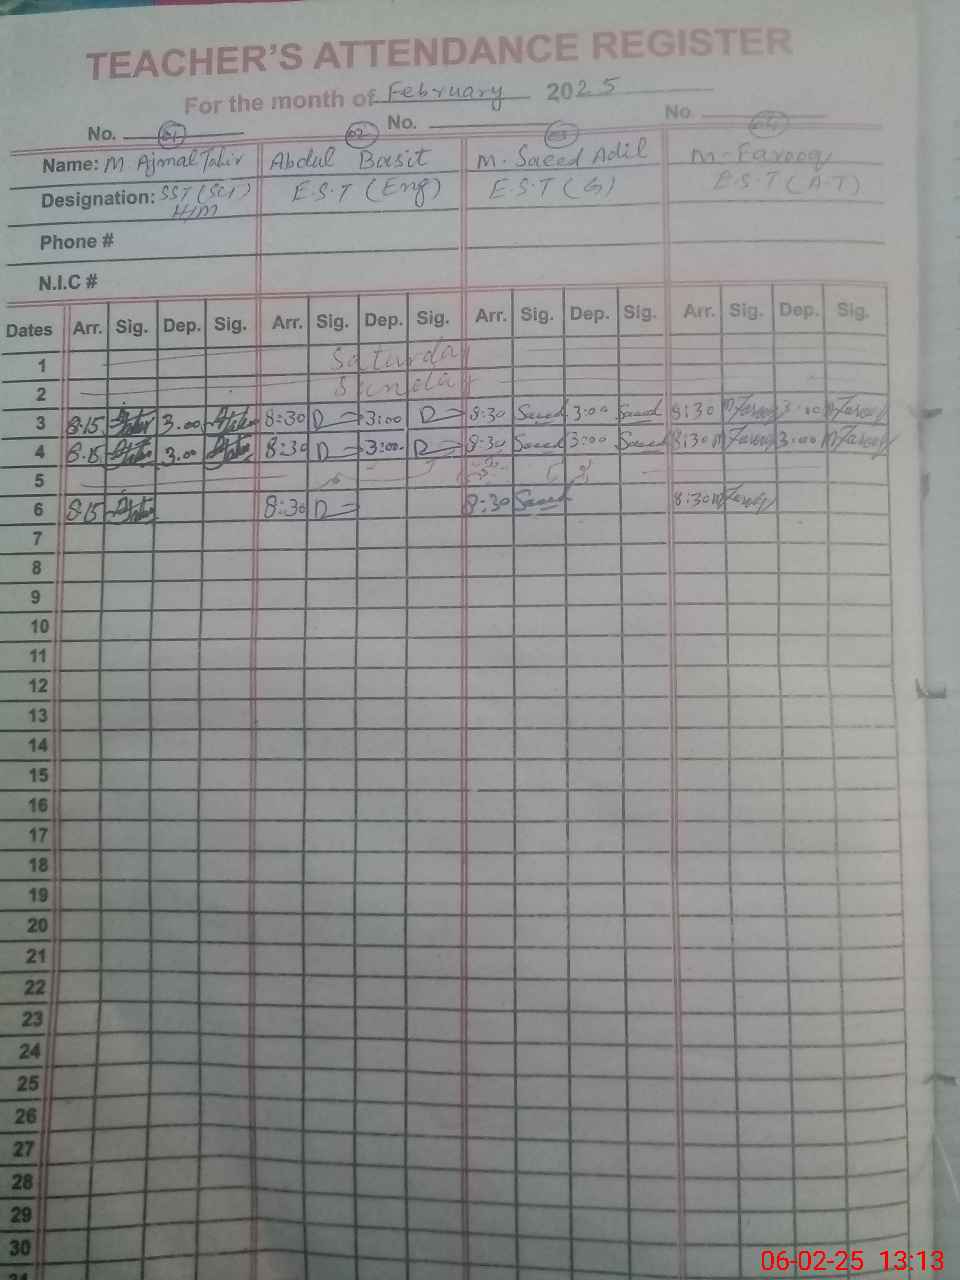 TEACHER'S ATTENDANCE REGISTER
For the month of February 2025
No. 01 02 No. 03 No. 04
Name: M Ajmal Tahir Abdul Basit M. Saeed Adil M. Farooq
Designation: SST (Sci) E.S.T (Eng) E.S.T (G) E.S.T (A.T)
H/M
Phone #
N.I.C #
Dates Arr. Sig. Dep. Sig. Arr. Sig. Dep. Sig. Arr. Sig. Dep. Sig. Arr. Sig. Dep. Sig.
1 Saturday
2 Sunday
3 8:15 3.00 8:30 3:00 8:30 Saeed 3:00 Saeed 8:30 M Farooq 3:00 M Farooq
4 8.15 3.00 8:30 3:00 8:30 Saeed 3:00 Saeed 8:30 M Farooq 3:00 M Farooq
5
6 8.15 8:30 8:30 Saeed 8:30 M Farooq
7
8
9
10
11
12
13
14
15
16
17
18
19
20
21
22
23
24
25
26
27
28
29
30
06-02-25 13:13